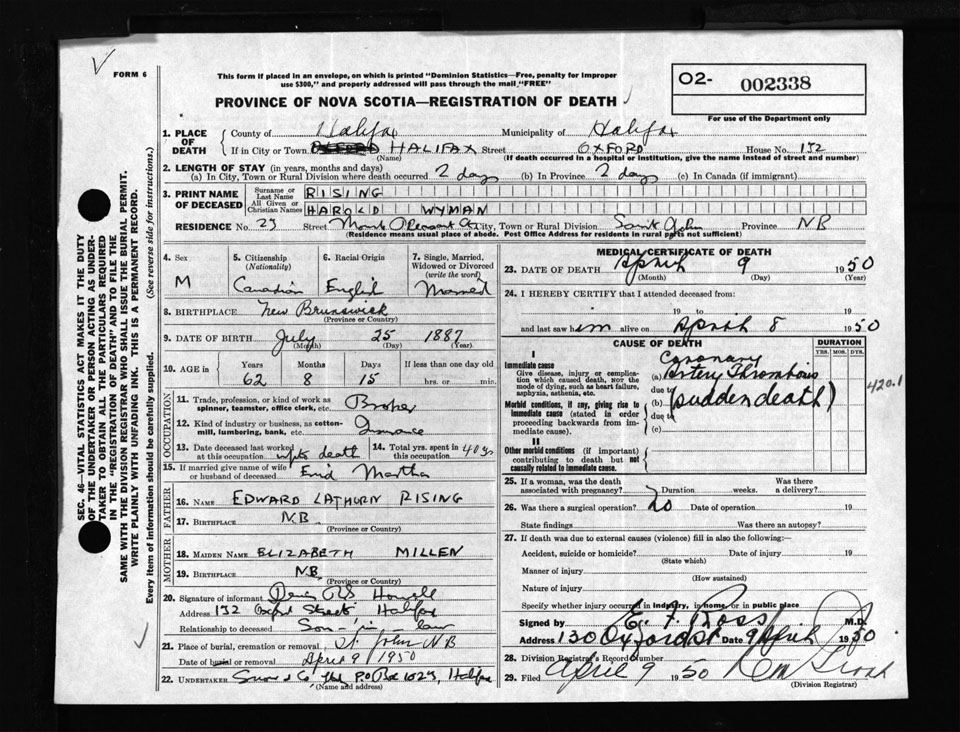 FORM 6
This form if placed in an envelope, on which is printed "Dominion Statistics—Free, penalty for improper
use $300," and properly addressed will pass through the mail "FREE"
PROVINCE OF NOVA SCOTIA—REGISTRATION OF DEATH
O2- 002338
For use of the Department only
1. PLACE OF DEATH
County of Halifax Municipality of Halifax
If in City or Town HALIFAX Street OXFORD House No. 132
(Name) (If death occurred in a hospital or institution, give the name instead of street and number)
2. LENGTH OF STAY (in years, months and days)
(a) In City, Town or Rural Division where death occurred 2 days (b) In Province 2 days (c) In Canada (if immigrant)
3. PRINT NAME OF DECEASED
Surname or Last Name RISING
All Given or Christian Names HAROLD WYMAN
RESIDENCE No. 23 Street Mount Pleasant City, Town or Rural Division Saint John Province NB
(Residence means usual place of abode. Post Office Address for residents in rural parts not sufficient)
4. Sex M
5. Citizenship (Nationality) Canadian
6. Racial Origin English
7. Single, Married, Widowed or Divorced (write the word) Married
8. BIRTHPLACE New Brunswick
(Province or Country)
9. DATE OF BIRTH July 25 1887
(Month) (Day) (Year)
10. AGE in Years Months Days If less than one day
62 8 15 hrs. or min.
OCCUPATION
11. Trade, profession, or kind of work as
spinner, teamster, office clerk, etc. Broker
12. Kind of industry or business, as cotton-
mill, lumbering, bank, etc. Insurance
13. Date deceased last worked
at this occupation upto death
14. Total yrs. spent in
this occupation 40 yrs
15. If married give name of wife
or husband of deceased Enid Martha
FATHER
16. NAME EDWARD LATHORN RISING
17. BIRTHPLACE N.B.
(Province or Country)
MOTHER
18. MAIDEN NAME ELIZABETH MILLEN
19. BIRTHPLACE N.B.
(Province or Country)
20. Signature of informant Howell
Address 132 Oxford Street Halifax
Relationship to deceased Son-in-law
21. Place of burial, cremation or removal St John NB
Date of burial or removal April 9 1950
22. UNDERTAKER Snow & Co Ltd P.O Box 1025, Halifax
(Name and address)
MEDICAL CERTIFICATE OF DEATH
23. DATE OF DEATH April 9 1950
(Month) (Day) (Year)
24. I HEREBY CERTIFY that I attended deceased from:
19 to 19
and last saw him alive on April 8 1950
CAUSE OF DEATH DURATION
YRS. MOS. DYS.
I
Immediate cause
Give disease, injury or complica-
tion which caused death, NOT the
mode of dying, such as heart failure,
asphyxia, asthenia, etc.
Coronary
(a) Artery Thrombosis
due to
(b) (sudden death)
due to
(c)
420.1
Morbid conditions, if any, giving rise to
immediate cause (stated in order
proceeding backwards from im-
mediate cause).
II
Other morbid conditions (if important)
contributing to death but not
causally related to immediate cause.
25. If a woman, was the death Was there
associated with pregnancy? Duration weeks. a delivery?
26. Was there a surgical operation? No Date of operation 19
State findings Was there an autopsy?
27. If death was due to external causes (violence) fill in also the following:—
Accident, suicide or homicide? Date of injury 19
(State which)
Manner of injury
(How sustained)
Nature of injury
Specify whether injury occurred in industry, in home, or in public place
Signed by E. F. Ross M.D.
Address 130 Oxford St Date 9 April 1950
28. Division Registrar's Record Number
29. Filed April 9 1950
(Division Registrar)
SEC. 46—VITAL STATISTICS ACT MAKES IT THE DUTY
OF THE UNDERTAKER OR PERSON ACTING AS UNDER-
TAKER TO OBTAIN ALL THE PARTICULARS REQUIRED
IN THE "REGISTRATION OF DEATH" AND TO FILE THE
SAME WITH THE DIVISION REGISTRAR WHO SHALL ISSUE THE BURIAL PERMIT.
WRITE PLAINLY WITH UNFADING INK. THIS IS A PERMANENT RECORD.
Every item of information should be carefully supplied. (See reverse side for instructions.)